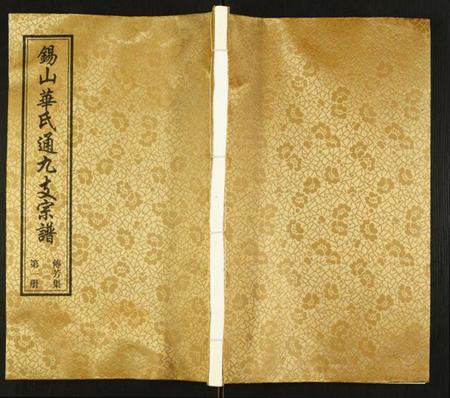 錫山華氏通九支宗譜
傳芳集
第一册